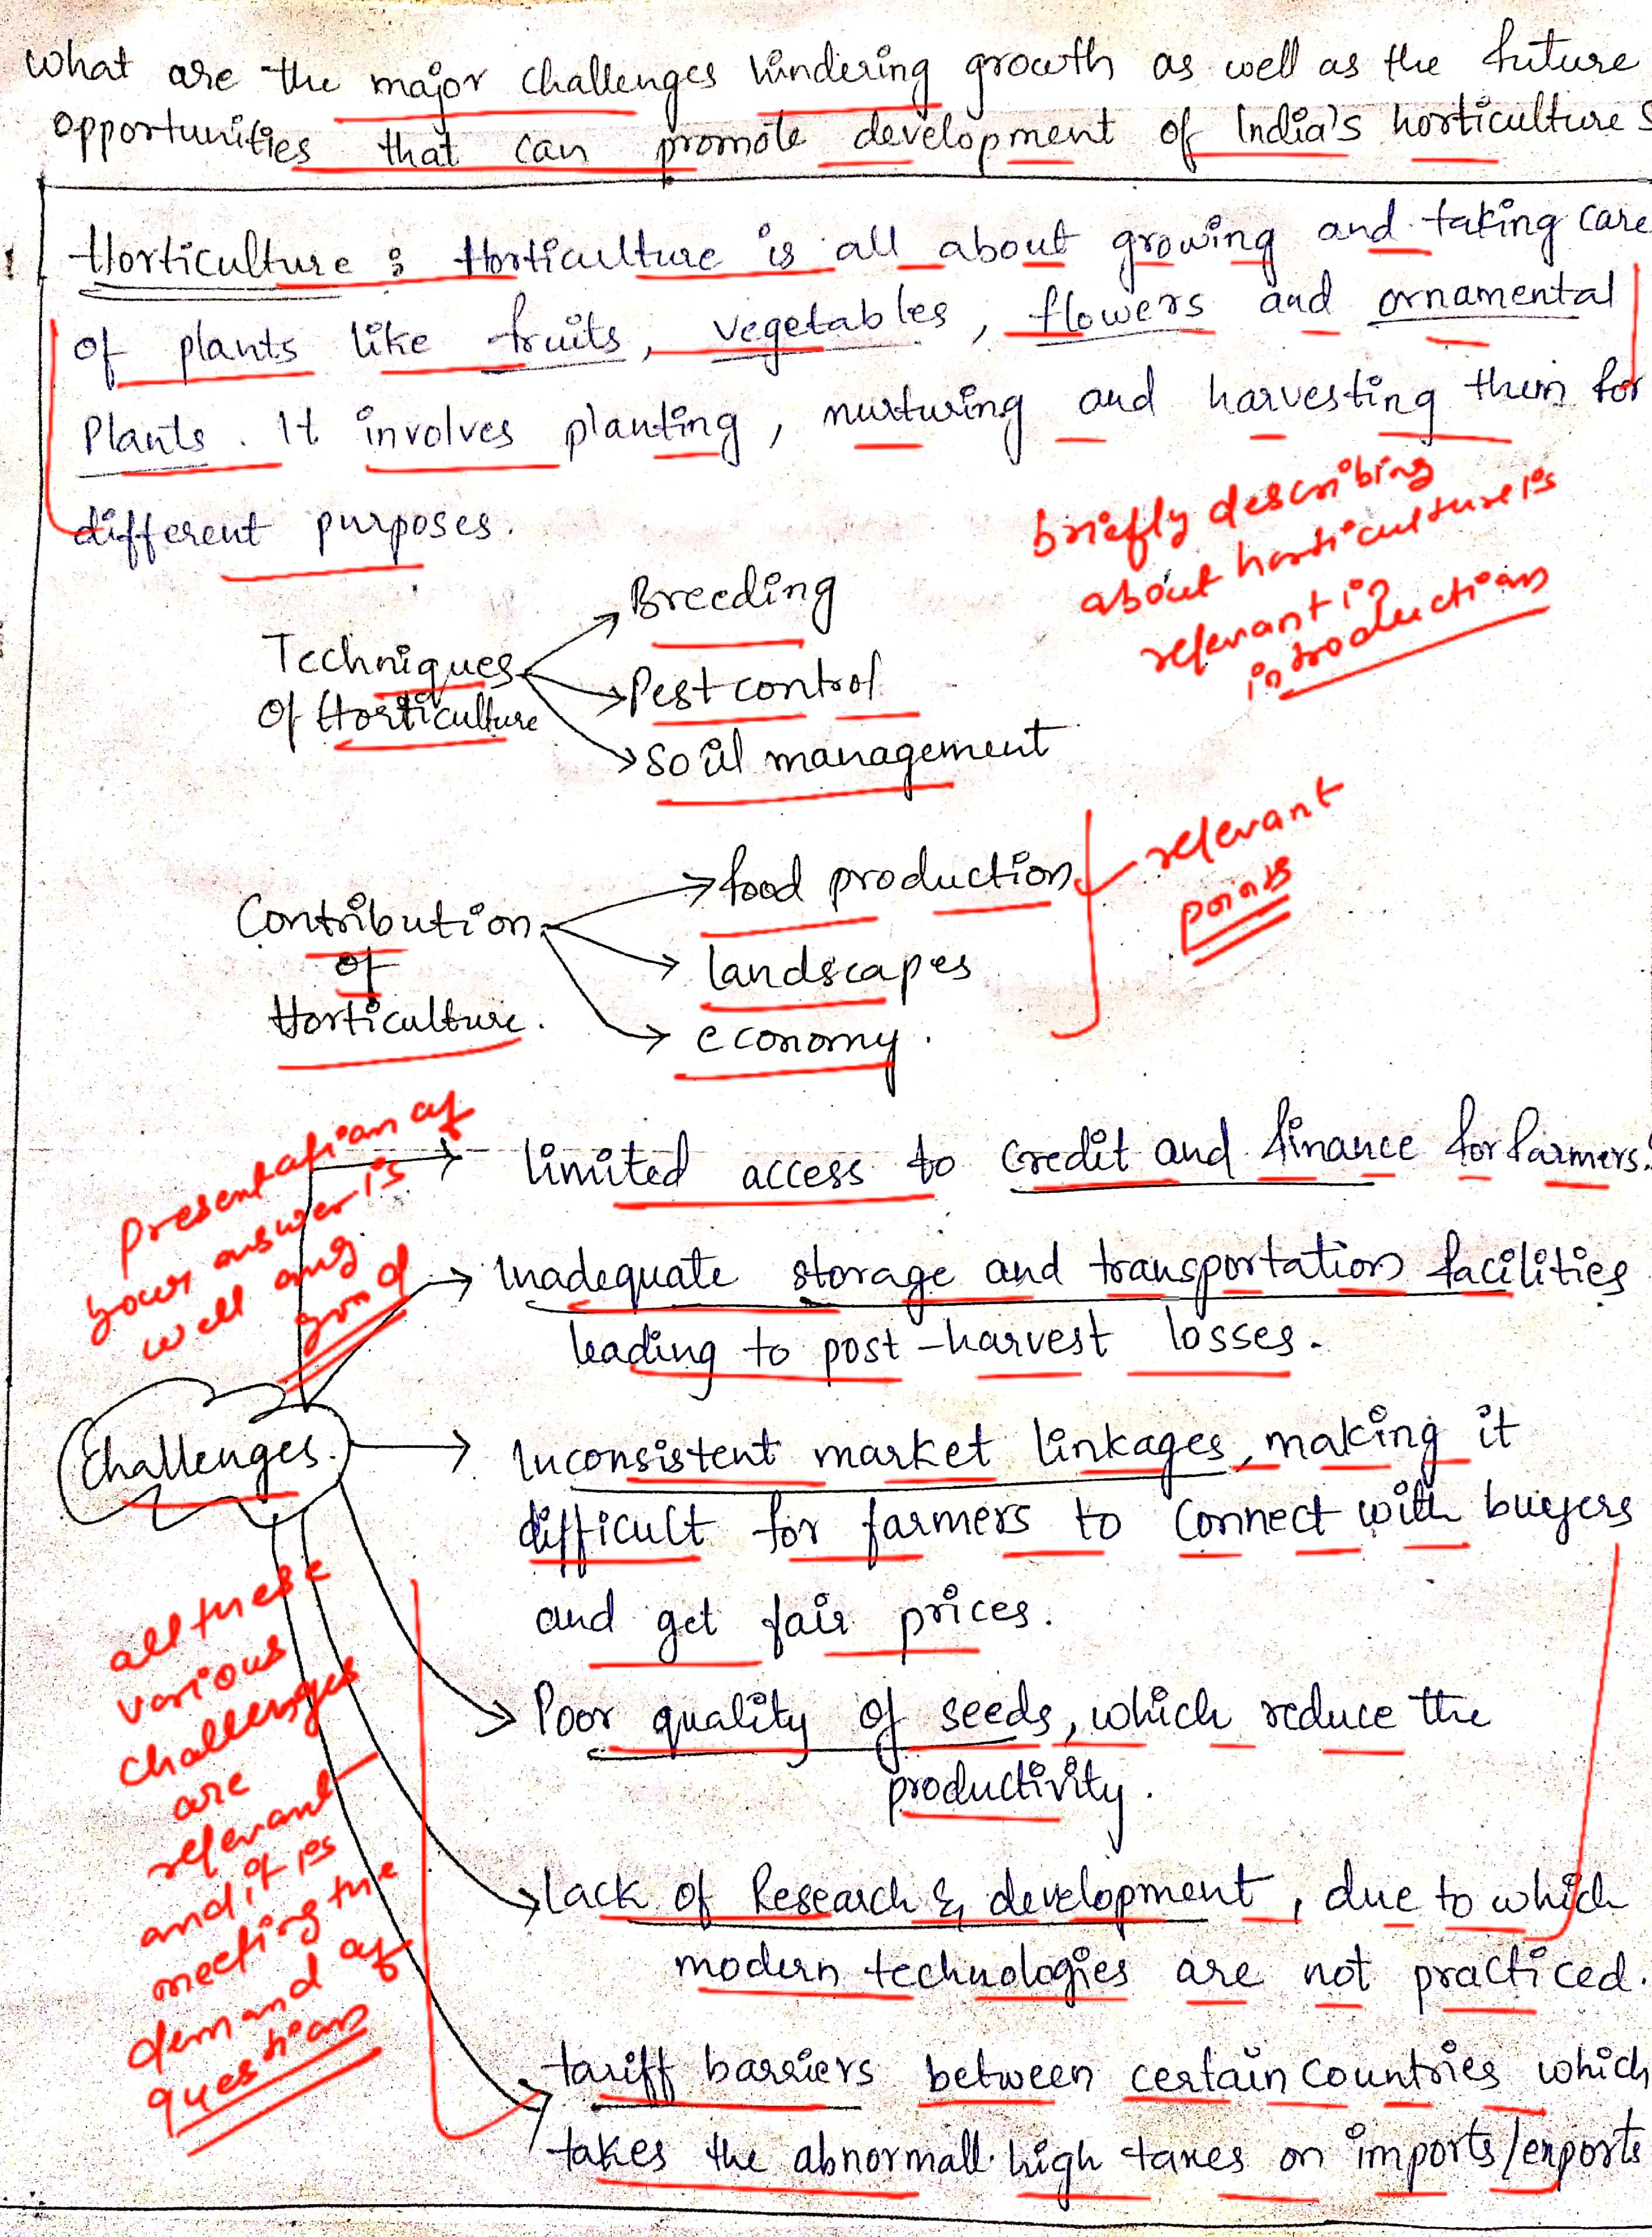 What are the major challenges hindering growth as well as the future
opportunities that can promote development of India's horticulture
Horticulture : Horticulture is all about growing and taking care
of plants like fruits, vegetables, flowers and ornamental
Plants. It involves planting, nurturing and harvesting them for
different purposes.
briefly describing
about horticulture is
relevant in
introduction
Techniques
of Horticulture
Breeding
Pest control
Soil management
Contribution
of
Horticulture.
food production
landscapes
economy.
relevant
points
presentation of
your answer is
well and
good
Challenges.
limited access to Credit and finance for farmers.
Inadequate storage and transportation facilities
leading to post-harvest losses.
Inconsistent market linkages, making it
difficult for farmers to connect with buyers
and get fair prices.
Poor quality of seeds, which reduce the
productivity.
lack of Research & development, due to which
modern technologies are not practiced.
tariff barriers between certain countries which
takes the abnormall high taxes on imports/exports
all these
various
challenges
are
relevant
and it is
meeting the
demand of
question